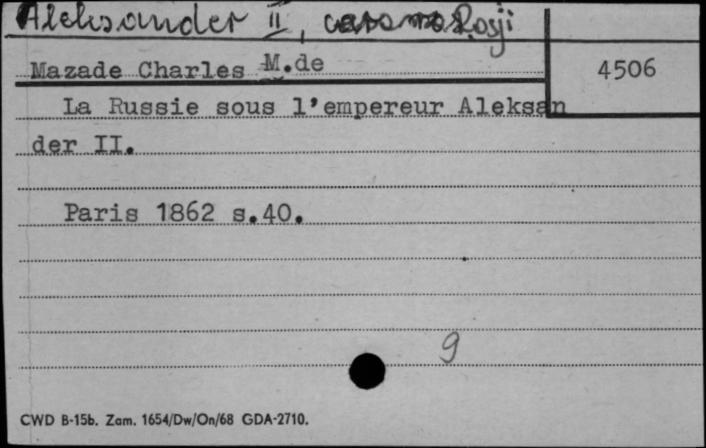 Aleksander II, Rosji
Mazade Charles M.de
4506
La Russie sous l'empereur Aleksan
der II.
Paris 1862 s.40.
9
CWD B-15b. Zam. 1654/Dw/On/68 GDA-2710.